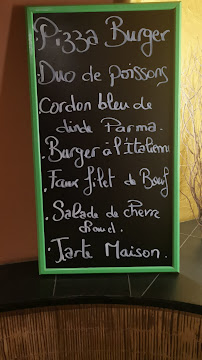 Pizza Burger
. Duo de poissons
. Cordon bleu de
dinde Parma.
. Burger à l'Italienne
. Faux filet de Boeuf
. Salade de chèvre
chaud.
. Tarte Maison.